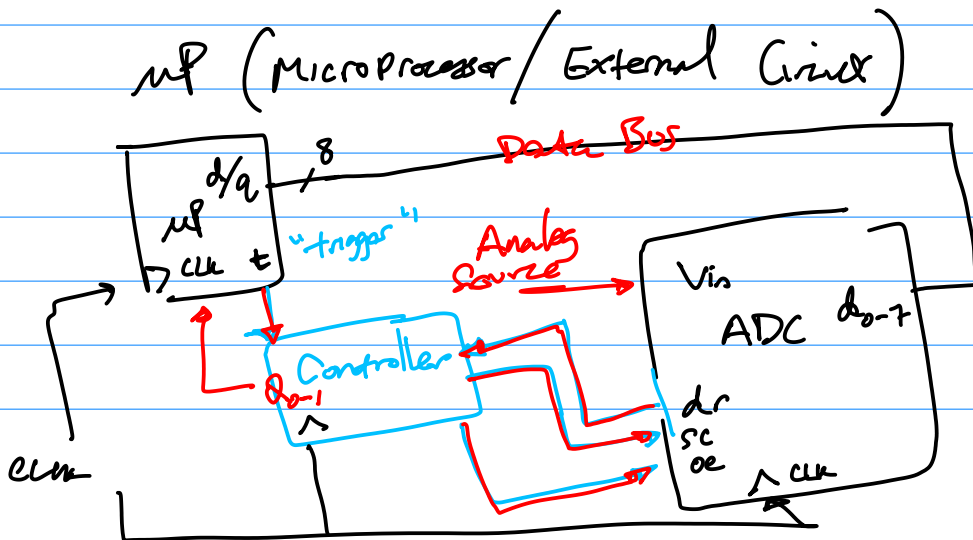 μP (Microprocessor / External Circuit)
Data Bus
8
d/q
μP
CLK t
"trigger"
Analog
Source
Vin
ADC
d0-7
Controller
Q0-1
dr
sc
oe
CLK
CLK